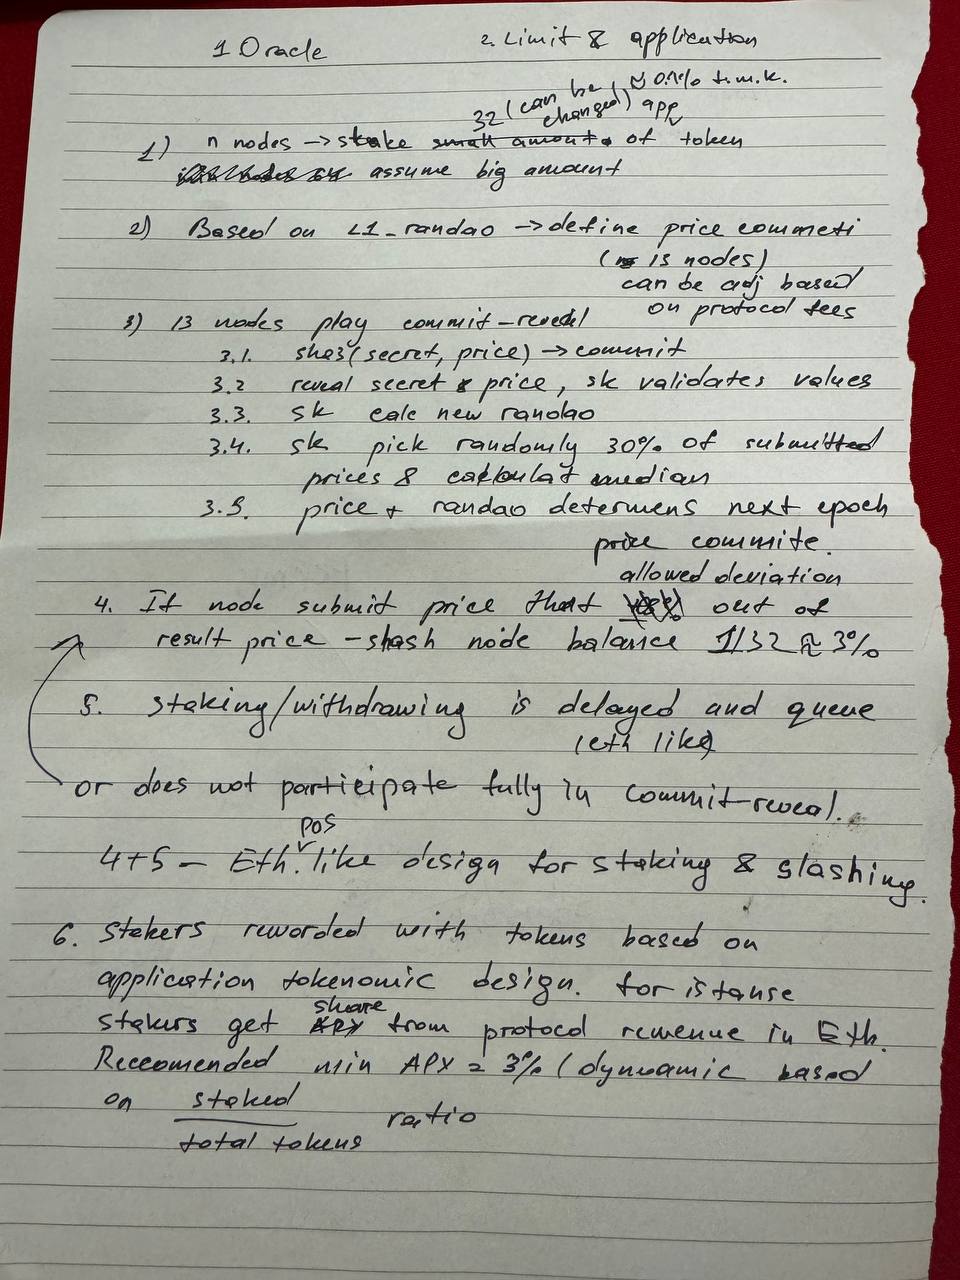 1 Oracle
2. Limit & application
32 (can be changed) ≈ 0.1% t.m.k.
app
1) n nodes -> stake small amount. of token
assume big amount
2) Based on L1_randao -> define price commeti
(13 nodes)
can be adj based
on protocol fees
3) 13 nodes play commit-reveal
3.1. sha3(secret, price) -> commit
3.2 reveal secret & price, sk validates values
3.3. sk calc new randao
3.4. sk pick randomly 30% of submitted
prices & calculat median
3.5. price + randao determens next epoch
price commite.
allowed deviation
4. If node submit price that out of
result price - slash node balance 1/32 ≈ 3%
5. staking/withdrawing is delayed and queue
(eth like)
or does not participate fully in commit-reveal.
pos
4+5 - Eth. like design for staking & slashing.
6. Stakers reworded with tokens based on
application tokenomic design. for istanse
share
stakers get from protocol revenue in Eth.
Reccomended min APY = 3% (dynamic based
on staked
ratio
total tokens